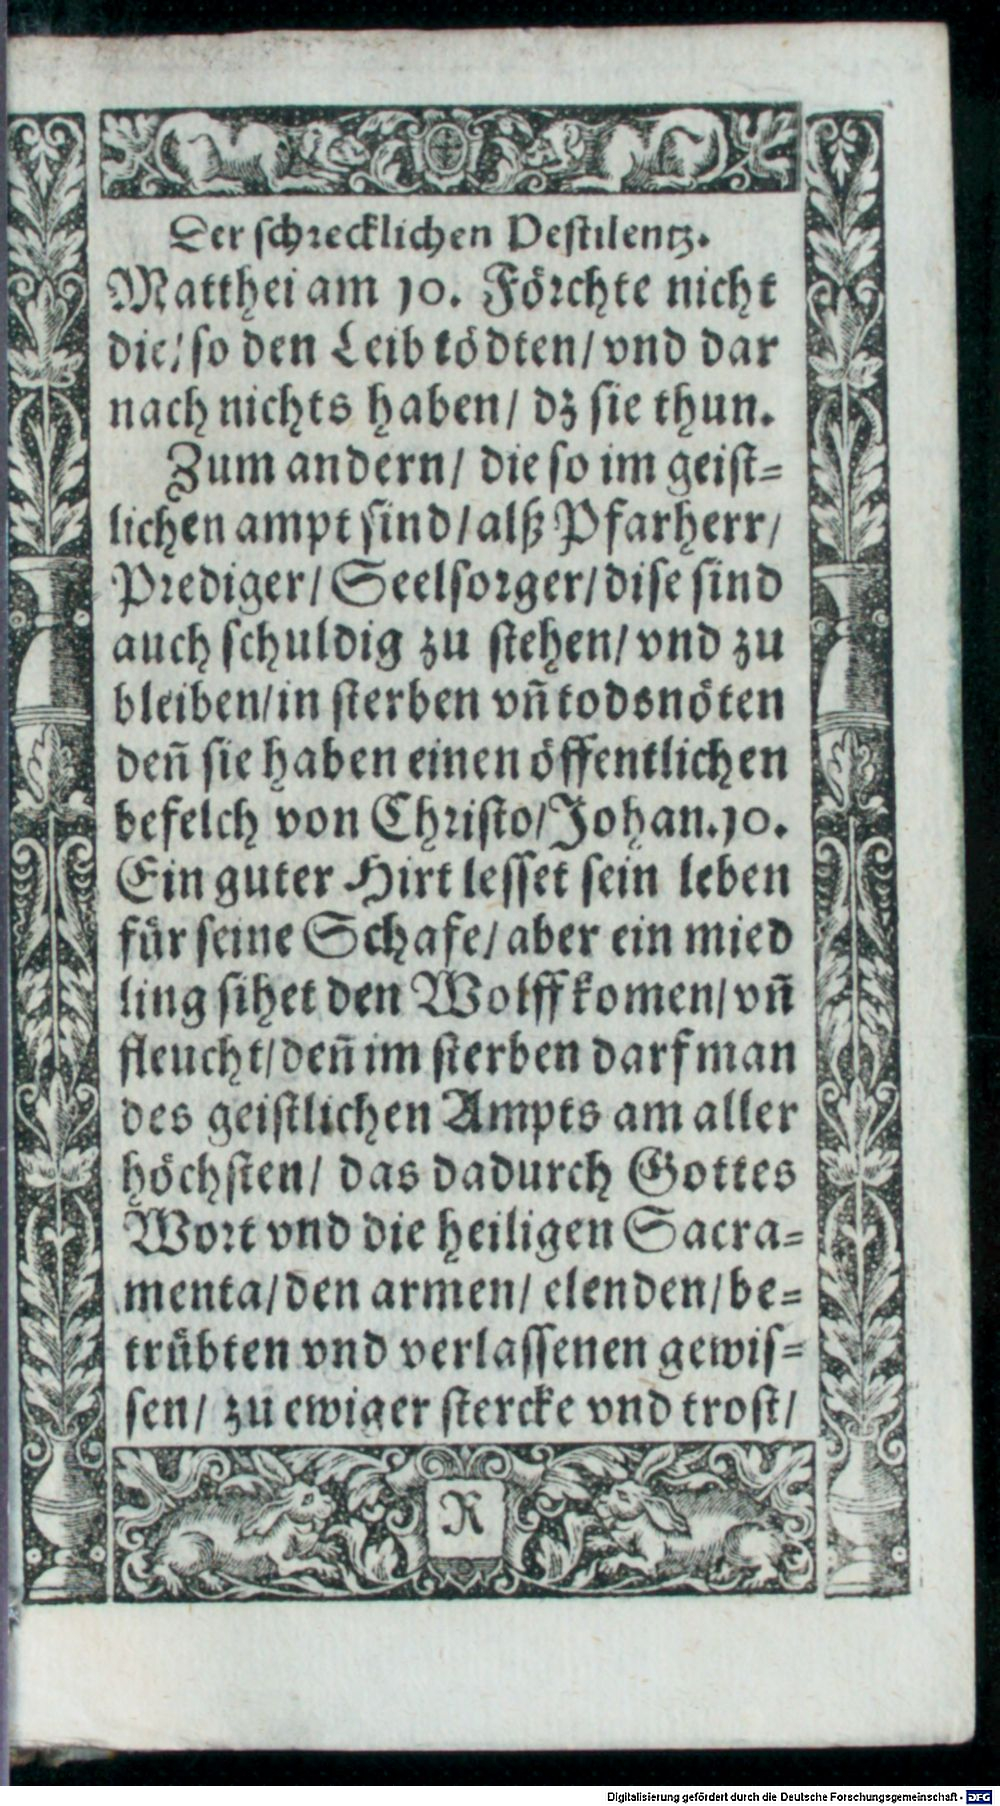 Der schrecklichen Pestilentz.
Matthei am 10. Förchte nicht
die/ so den Leib tödten/ vnd dar
nach nichts haben/ dz sie thun.
Zum andern/ die so im geist=
lichen ampt sind/ alß Pfarherr/
Prediger/ Seelsorger/ dise sind
auch schuldig zu stehen/ vnd zu
bleiben/ in sterben vñ todsnöten
deñ sie haben einen öffentlichen
befelch von Christo/ Johan. 10.
Ein guter Hirt lesset sein leben
für seine Schafe/ aber ein mied
ling sihet den Wolff komen/ vñ
fleucht/ deñ im sterben darf man
des geistlichen Ampts am aller
höchsten/ das dadurch Gottes
Wort vnd die heiligen Sacra=
menta/ den armen/ elenden/ be=
trübten vnd verlassenen gewis=
sen/ zu ewiger stercke vnd trost/
R
Digitalisierung gefördert durch die Deutsche Forschungsgemeinschaft - DFG